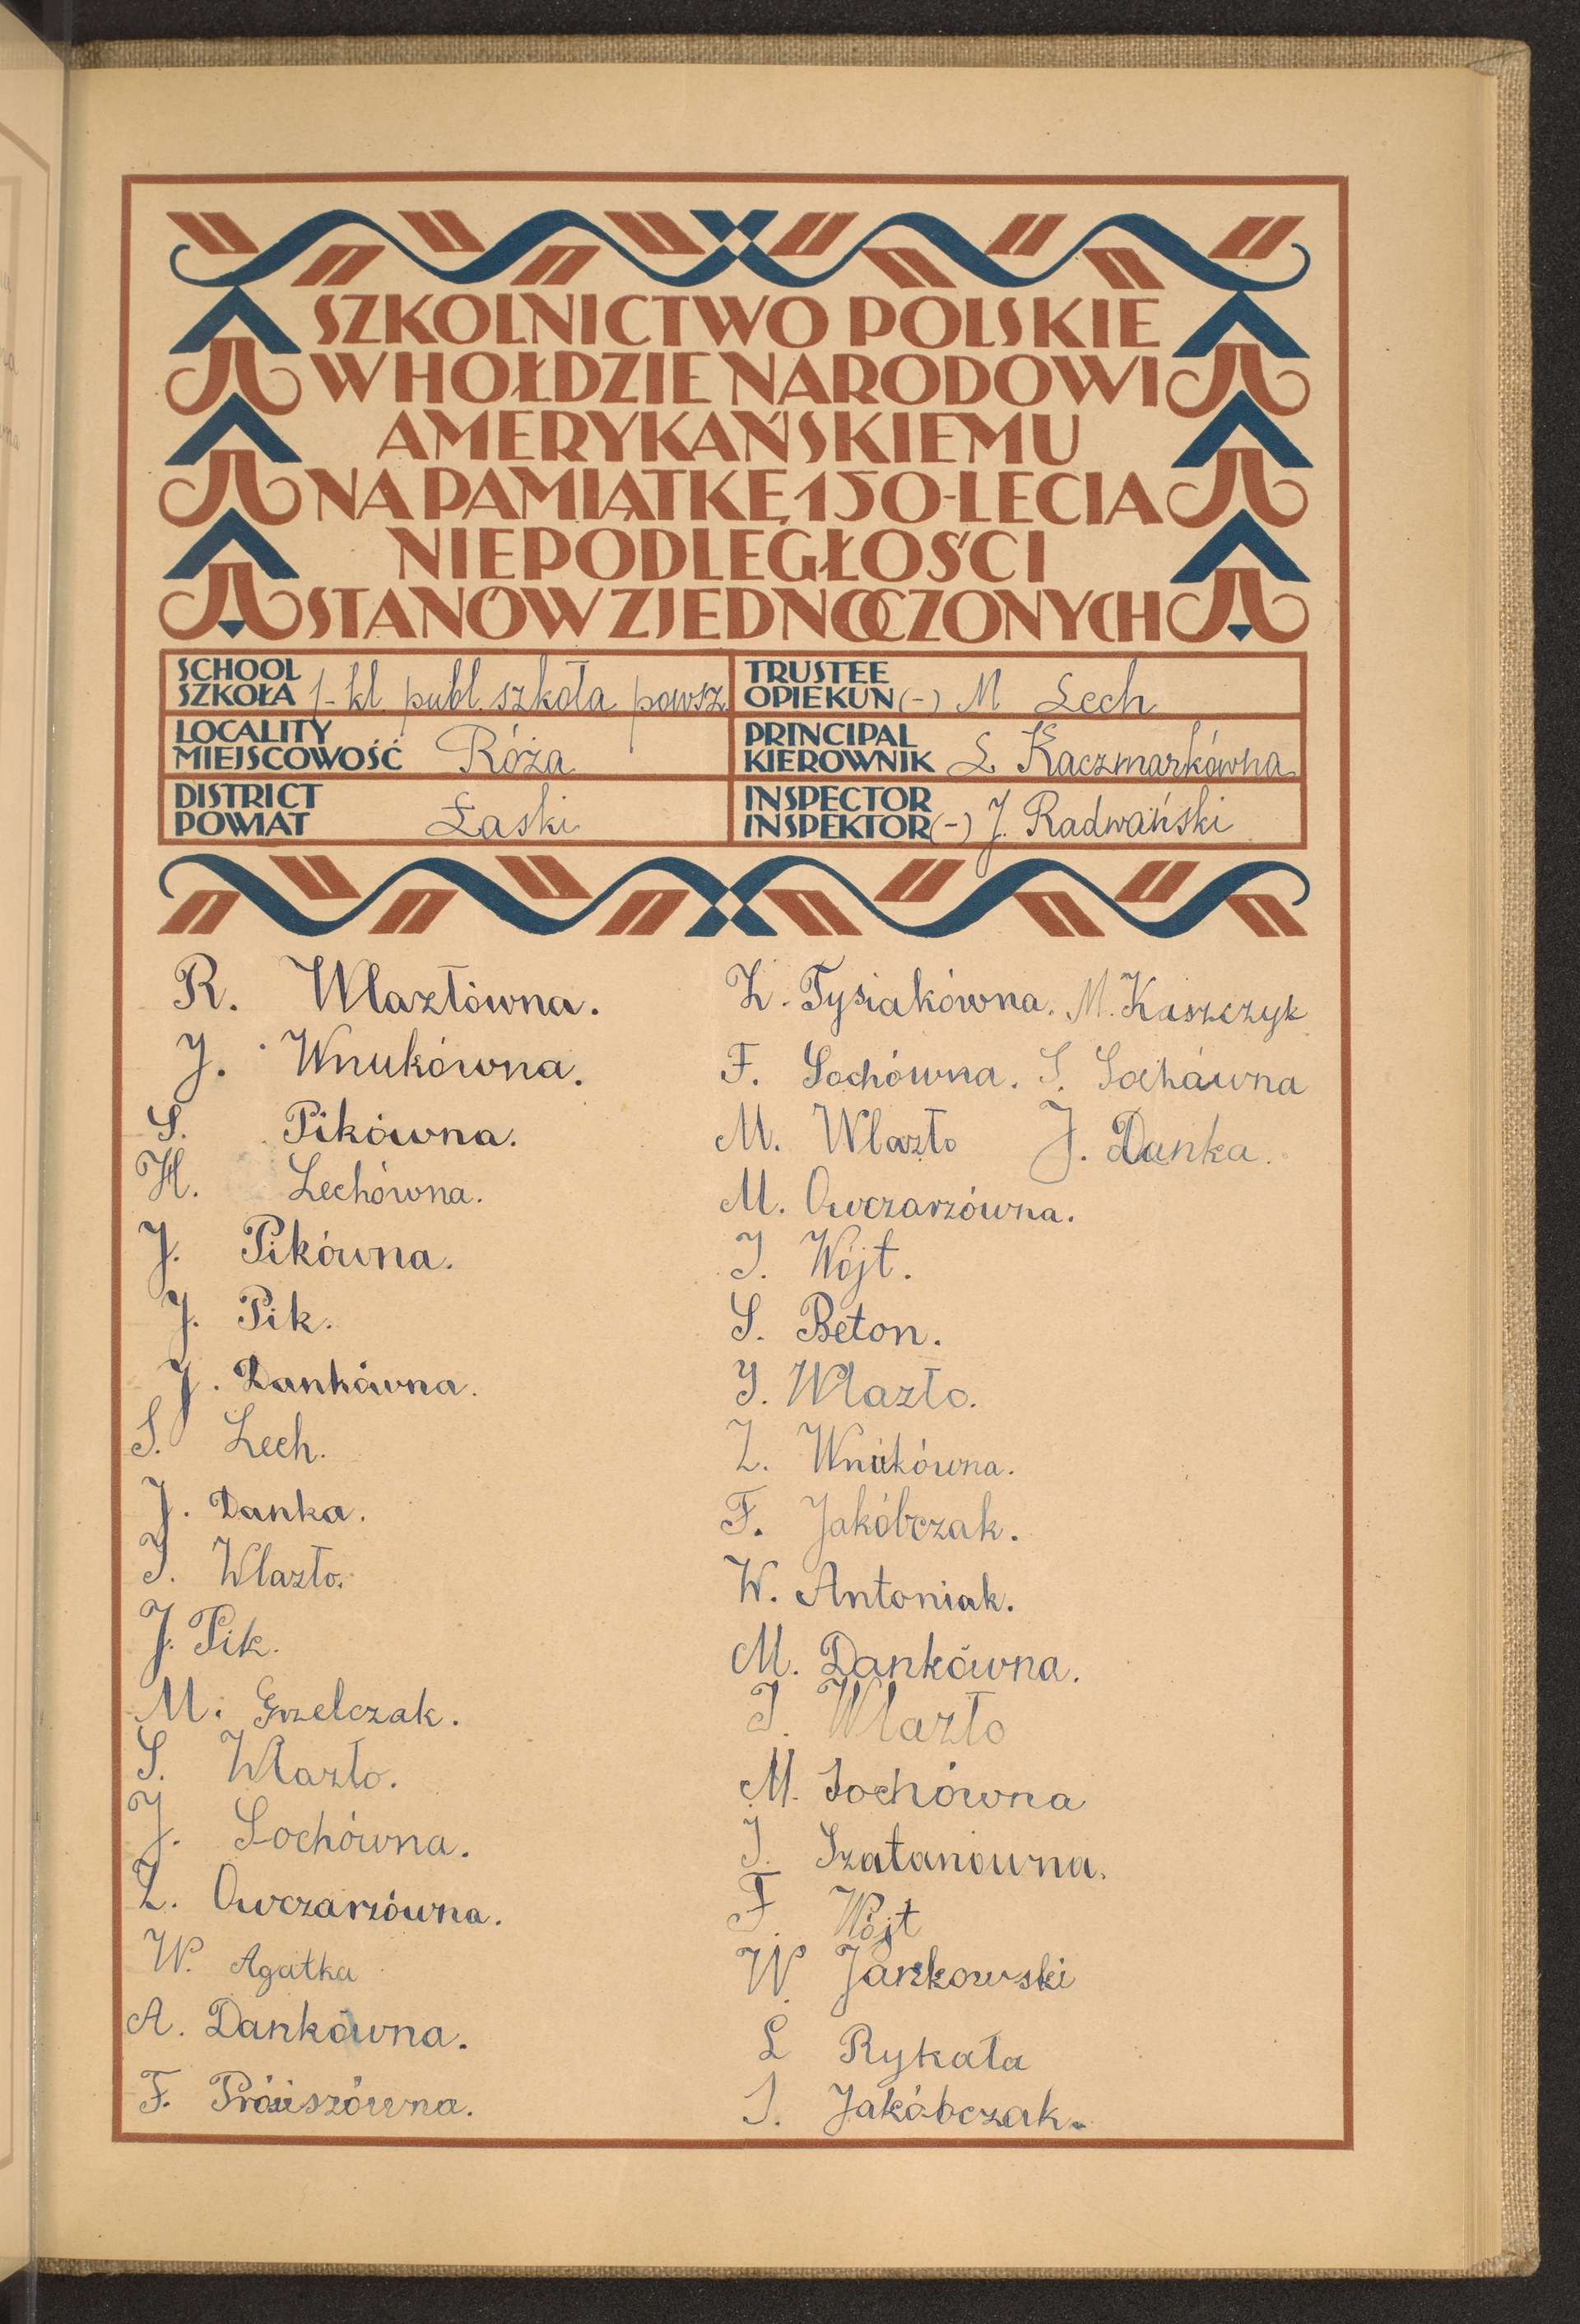 SZKOLNICTWO POLSKIE
W HOŁDZIE NARODOWI
AMERYKAŃSKIEMU
NA PAMIĄTKĘ 150-LECIA
NIEPODLEGŁOŚCI
STANÓW ZJEDNOCZONYCH
SCHOOL
SZKOŁA 1-kl. publ. szkoła powsz.
TRUSTEE
OPIEKUN (-) M Lech
LOCALITY
MIEJSCOWOŚĆ Róża
PRINCIPAL
KIEROWNIK L. Kaczmarkówna
DISTRICT
POWIAT Łaski
INSPECTOR
INSPEKTOR (-) J. Radwański
R. Wlazłówna.
J. Wnukówna.
S. Pikówna.
H. Lechówna.
J. Pikówna.
J. Pik.
J. Dankówna.
S. Lech.
J. Danka.
I. Wlazło.
J. Pik.
M. Grzelczak.
S. Wlazło.
J. Sochówna.
Z. Owczarzówna.
W. Agatka
A. Dankówna.
F.
Z. Tysiakówna. M. Kaszczyk
F. Sochówna. S. Sochówna
M. Wlazło J. Danka.
M. Owczarzówna.
I. Wójt.
S. Beton.
I. Wlazło.
Z. Wnukówna.
F. Jakóbczak.
W. Antoniak.
M. Dankówna.
I. Wlazło
M. Sochówna
I. Szatanówna.
F. Wójt
W. Jankowski
L Rykała
S. Jakóbczak.